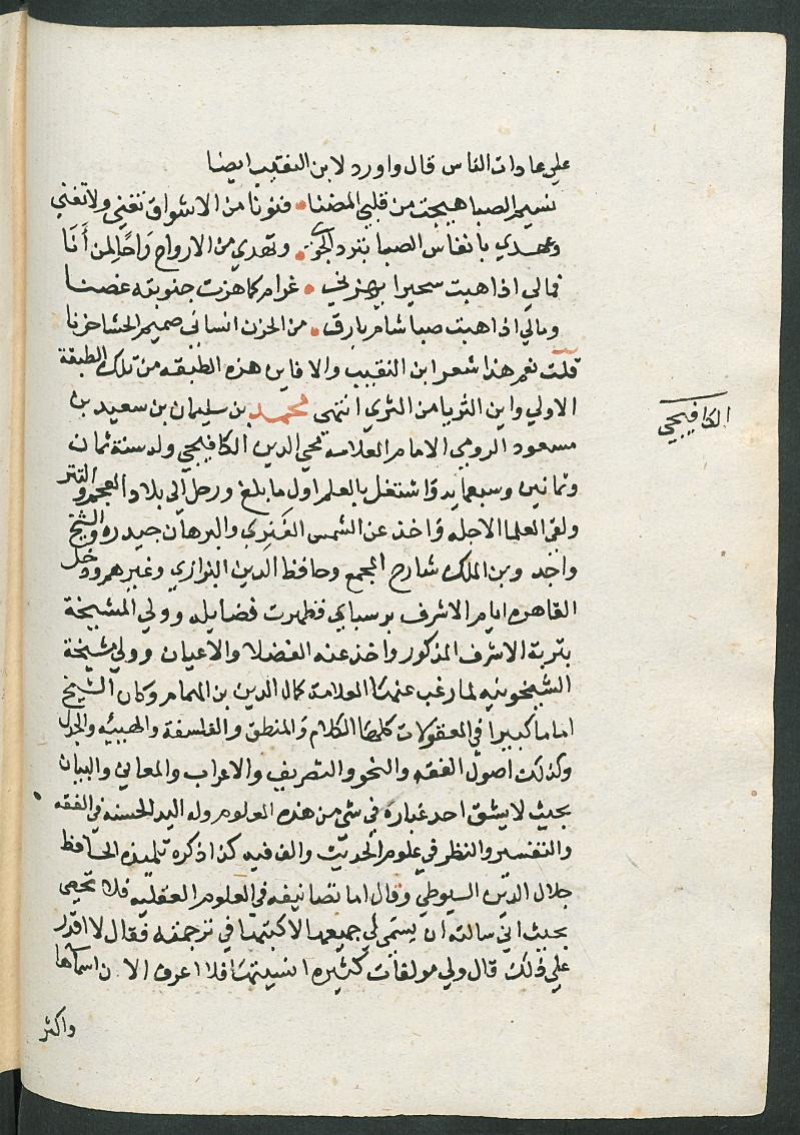 علي عادات الناس قال واورد لابن النقيب ايضا
نسيم الصبا هيجت من قلبي المضنا • فنونا من الاشواق تفني ولا تفني
وعهدي بانفاس الصبا بترد الجوي • وتهدي من الارواح راحا لمن أنا
فمالي اذا هبت سحيرا يهزني • غرام كما هزت جنوبته غصنا
ومالي اذا هبت صبا شام بارق • من الحزن انساني صميم الحشا حزنا
قلت نعم هذا شعر ابن النقيب والا فاين هذه الطبقه من تلك الطبقة
الاولي واين الثريا من الثري انتهى محمد بن سليمان بن سعيد بن
الكافيجي
مسعود الرومي الامام العلامة محيي الدين الكافيجي ولد سنة ثمان
وثمانين وسبعمايه واشتغل بالعلم اول ما بلغ ورحل الي بلاد العجم والتتر
ولقي العلما الاجله واخذ عن الشمس الفنري والبرهان حيدره والشيخ
واجد وبن الملك شارح المجمع وحافظ الدين البزازي وغيرهم ودخل
القاهره ايام الاشرف برسباي فظهرت فضايله وولي المشيخة
بتربة الاشرف المذكور واخذ عنه الفضلا والاعيان وولي مشيخة
الشيخونيه لما رغب عنها العلامة كمال الدين بن الهمام وكان الشيخ
اماما كبيرا في المعقولات كلها الكلام والمنطق والفلسفة والهييه والجدل
وكذلك اصول الفقه والنحو والتصريف والاعراب والمعاني والبيان
بحيث لا يشق احد غباره في شي من هذه العلوم وله اليد الحسنه في الفقه
والتفسير والنظر في علوم الحديث والف فيه كذا ذكره تلميذه الحافظ
جلال الدين السيوطي وقال اما تصانيفه في العلوم العقليه فلا تحصى
بحيث اني سالته ان يسمى لي جميعها لاكتبها في ترجمته فقال لا اقدر
علي ذلك قال ولي مولفات كثيره انسيتها فلا اعرف الان اسماها
واكثر